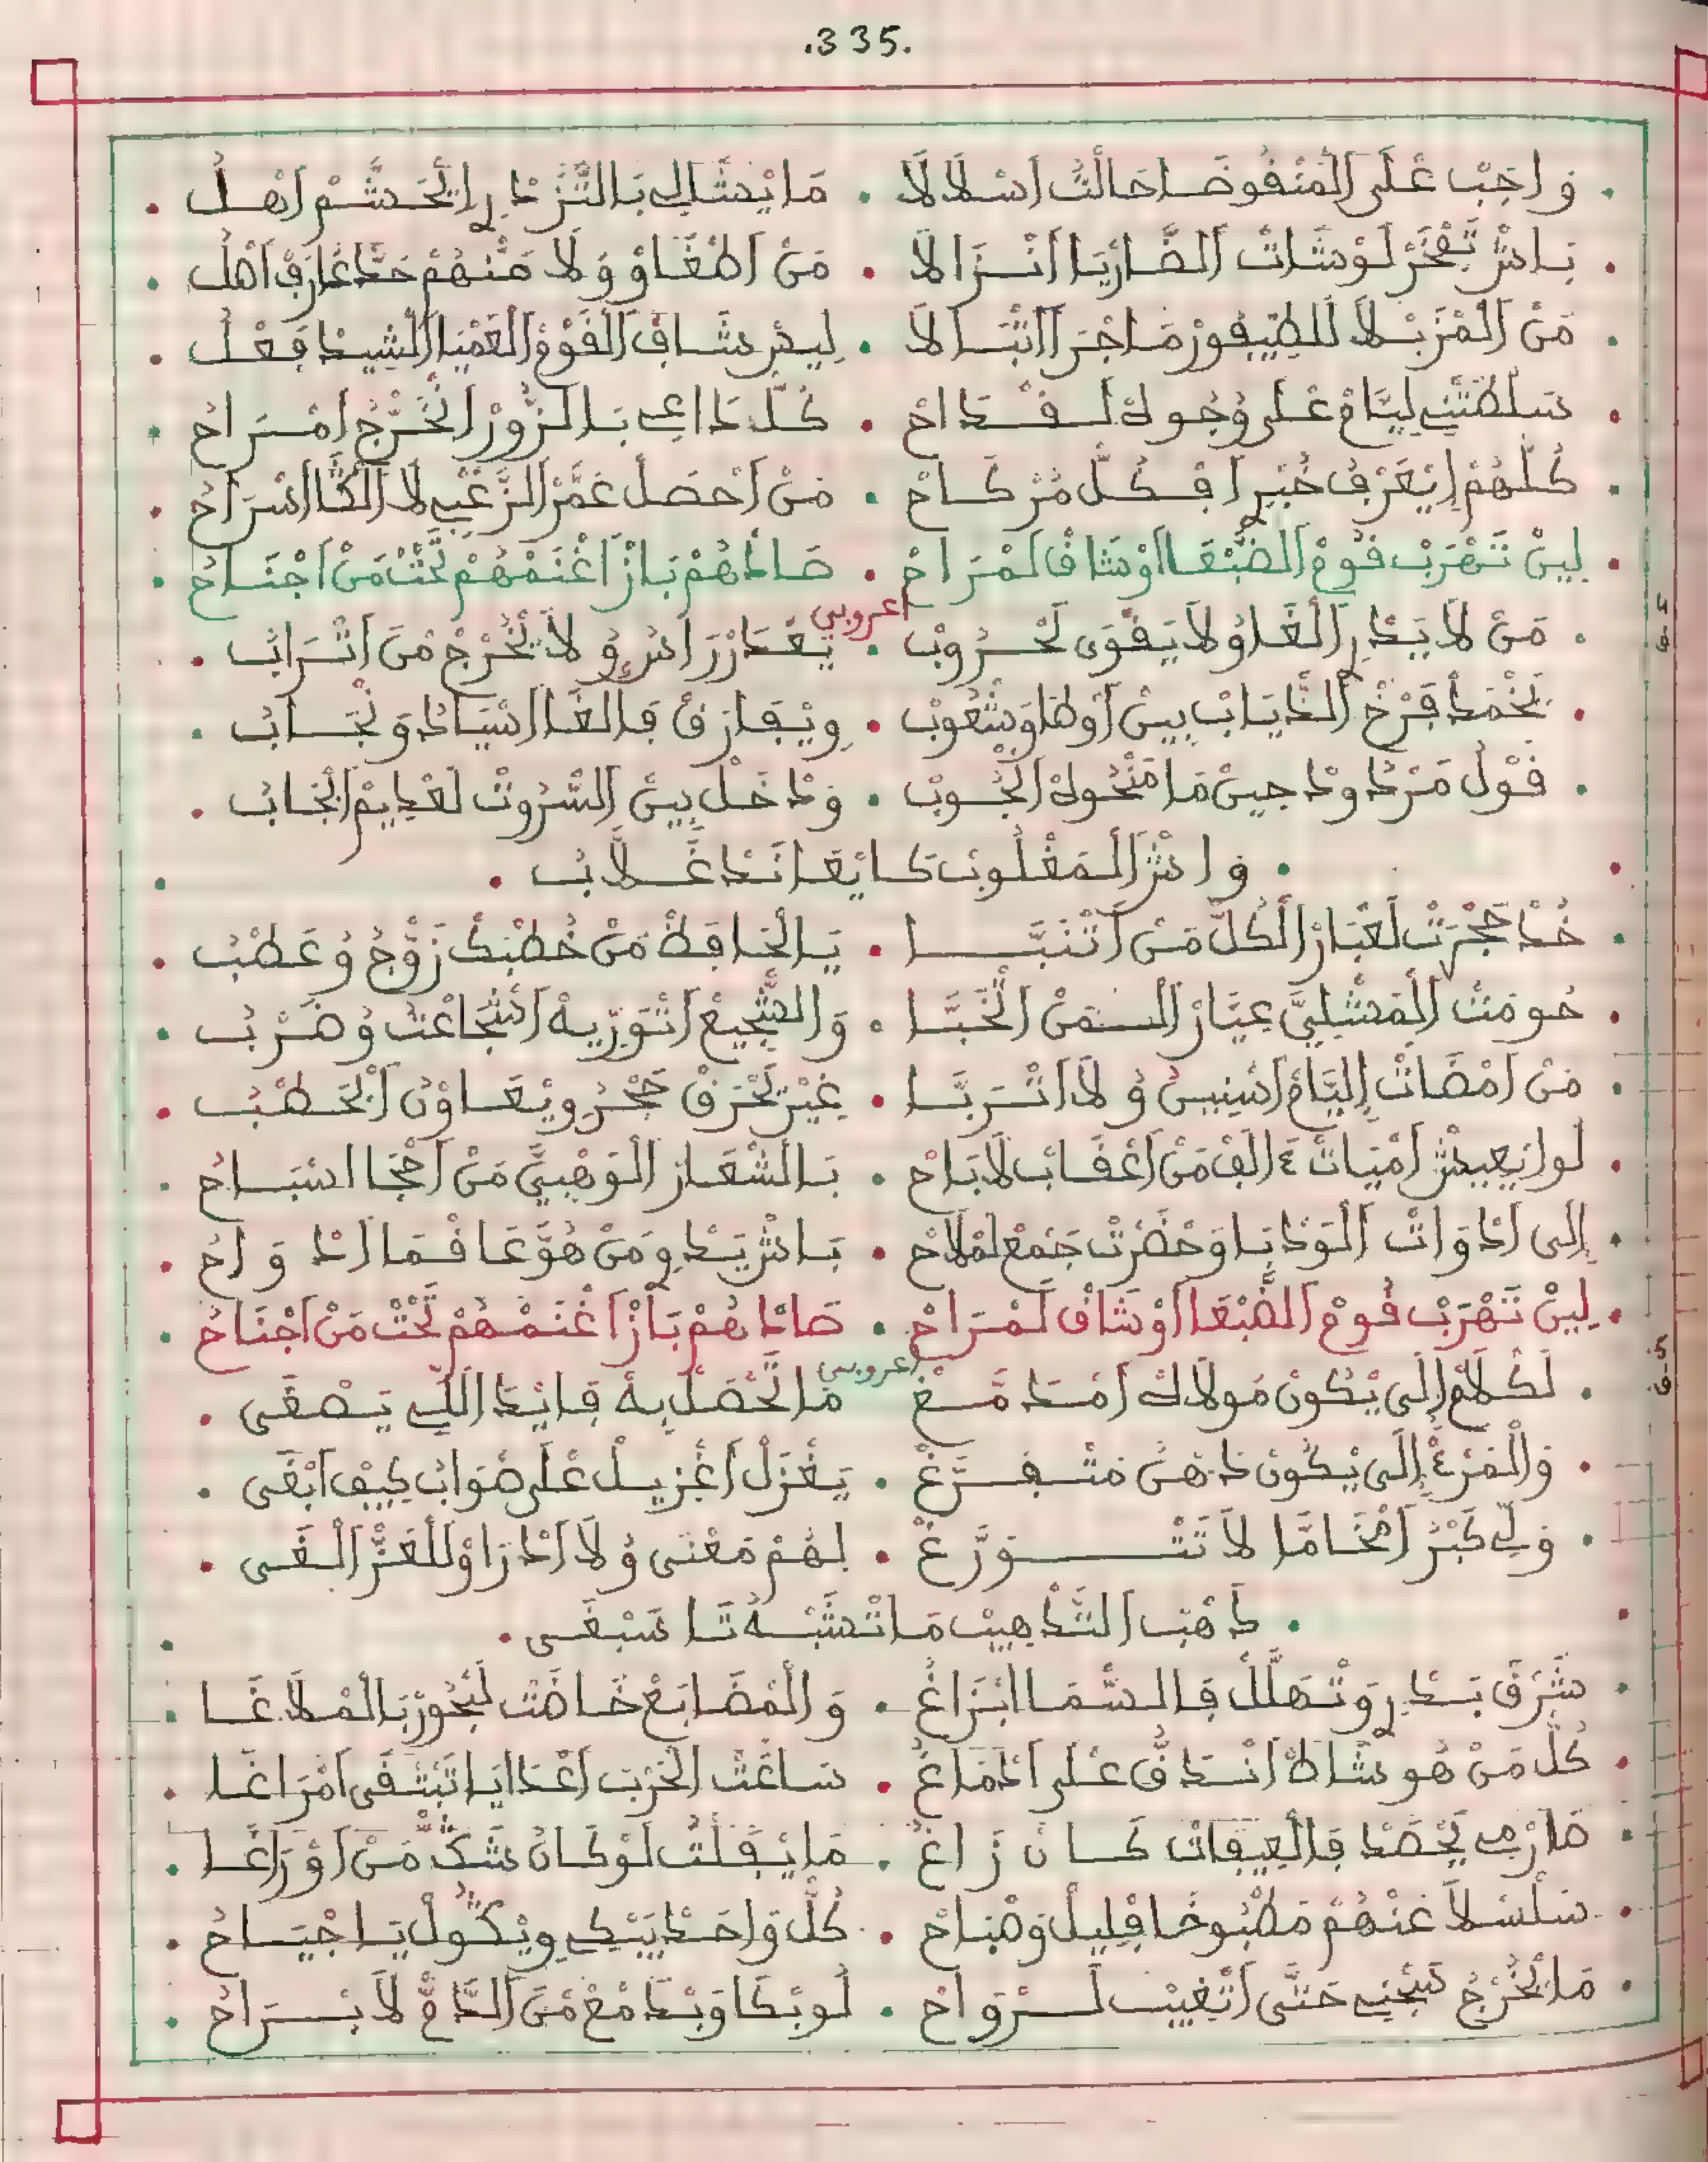 .335.
. وَاجَبْ عْلَى الْمَنْفُوضَا حَالْتُ اسْلَالَا . مَا يْشَالِي بَالنَّزْدْرِ إِيْحَشَّمْ اَهْلُ .
. بَاشْ تَفْخَرْ لَوْ شَاتْ الضَّارْيَا اَنْزَالَا . مَنْ اطْغَاوْ وَلَا مَنْهُمْ حَدّْ عَارَفْ اَهْلُ .
. مَنْ الْمَزْبْلَا لَلطِّيفُورْ مَا جْرَا اتْبَالَا . لِيسْ شَافْ الْقَوْمْ الْعَمْيَا الْشِيدْ فَعْلُ .
. سَلْطَتْنِي لِيَّامْ عْلَى وْجُوهْ لَقْدَاحْ . كُلّْ دَاعِي بَالزُّورْ اتْخَرَّجُ اَمْرَاحُ .
. كُلّْهُمْ إِيْعَرْفُ خُبْرِ افْكُلّْ مَرْكَاحْ . مَنْ اَحْصَلْ عَمَّرْ الزَّغْبِي لَا الْكَا اسْرَاحُ .
. لِينْ تَهْرَبْ قَوْمْ الضَّبْعَا اوْشَاقْ لَمْرَاحْ . صَادْهُمْ بَازْ اغْنَمْهُمْ تَحْتْ مَنْ اجْنَاحُ .
اعروبي
. مَنْ لَا يَدْرِ الْغَاوْ لَا يَقْوَى لَحْرُوبْ . يَعْدَارْ رَاسُ وُلَا يَخْرُجْ مْنَ اتْرَابُ .
. يَخْمَدْ فَرْخْ الذّْيَابْ بِينْ أَوْطَا وَشْعُوبْ . وِيْفَارَقْ فَالْغَا اسْيَادُ وَنْجَابُ .
. قَوْلْ مَرْدُ وْدَاجِينْ مَا مَنْحُولْ الْجُوبْ . وَدَاخَلْ بِينْ السَّرُوتْ لَعْدِيمْ الْجَابُ .
. وَاشْ الْمَغْلُوبْ كَا يْعَانَدْ غَلَّابُ .
. خُدْ حَجْرَتْ لَعْبَارْ الْكُلّْ مَنْ اتْنَبَّا . يَا الْحَافَظْ مَنْ خُطْبَكْ زَوْجُ وُعَطْبُ .
. حُومَتْ الْمَشْلِيَّ عِيَّارْ السْمَنْ اتْخَبَّا . وَالشّْجِيعْ اتْوَرِّيهْ اشْجَاعْتُ وُضَرْبُ .
. مَنْ اَمْضَاتْ الِيَّامْ اسْنِينُ وُلَا اتْرَبَّا . غِيرْ يَحْرَقْ حَجْرُ وِيْعَاوْنُ الْحَطْبُ .
. لَوْ ايْعِيشْ اَمْيَاتْ ءَالَفْ مَنْ اَعْقَابْ لَا بَاحْ . بَالشْعَارْ الْوَهْبِيَّ مَنْ احْجَا اسْبَاحُ .
. إِلَى ادْوَاتْ الْوَدْبَا وَحْضَرْتْ جَمْعْ لَمْلَاحْ . بَاشْ يَدْوِ مَنْ هُوَّ عَافْمَا ادْوَاحُ .
. لِينْ تَهْرَبْ قُومْ الضَّبْعَا اوْشَاقْ لَمْرَاحْ . صَادْهُمْ بَازْ اغْنَمْهُمْ تَحْتْ مَنْ اجْنَاحُ .
اعروبي
. لَكْلَامْ إِلَى يْكُونْ مُولَاهْ اَمْدَمَّغْ مَا تَحْصَلْ بِهْ فَايْدَا اللِّي يَصْغَى .
. وَالْمَرْءْ إِلَى يْكُونْ دَهْنُ مَتْفَرَّغْ . يَغْزَلْ اغْزِيلْ عْلَى صْوَابْ كِيفْ ابْغَى .
. وَلِي كَبْرُ اَمْحَامَّا لَا تَتْوَرَّغْ . لَهُمْ مَعْنَى وُلَا ادْرَاوْ لَلْعَزّْ الْغَى .
. دَهْبْ التَّدْهِيبْ مَا تْشَبَّهْ تَاسَبْغَى .
. شَرْقْ بَدْرِ وَتْهَلَّلْ فَالسّْمَا ابْزَاغْ . وَالْمْضَابَعْ خَاضَتْ لَبْحُورْ بَالْمْلَاغَا .
. كُلّْ مَنْ هُو شَاطْ انْدَقّْ عْلَى ادْمَاغْ . سَاعْتْ الْحَرْبْ اعْدَايَا تَبْشَفَى امْرَاغَا .
. ضَارْمِي يَحْصَدْ فَالْعِيفَاتْ كَانْ زَاغْ . مَا يْفَلْتُ لَوْ كَانْ شَكّْ مَنْ اوْرَاغَا .
. سَلْسْلَا عَنْهُمْ مَطْبُوخَا فْلِيلْ وَصْبَاحْ . كُلّْ وَاحَدْ يَبْكِي وِيْكُولْ يَا جْيَاحُ .
. مَا يَخْرُجْ سَجْنِي حَتَّى اتْغِيبْ لَرْوَاحْ . لُو بْكَا وَبْدَمْعْ مْنَ الدَّمّْ لَا بْرَاحُ .